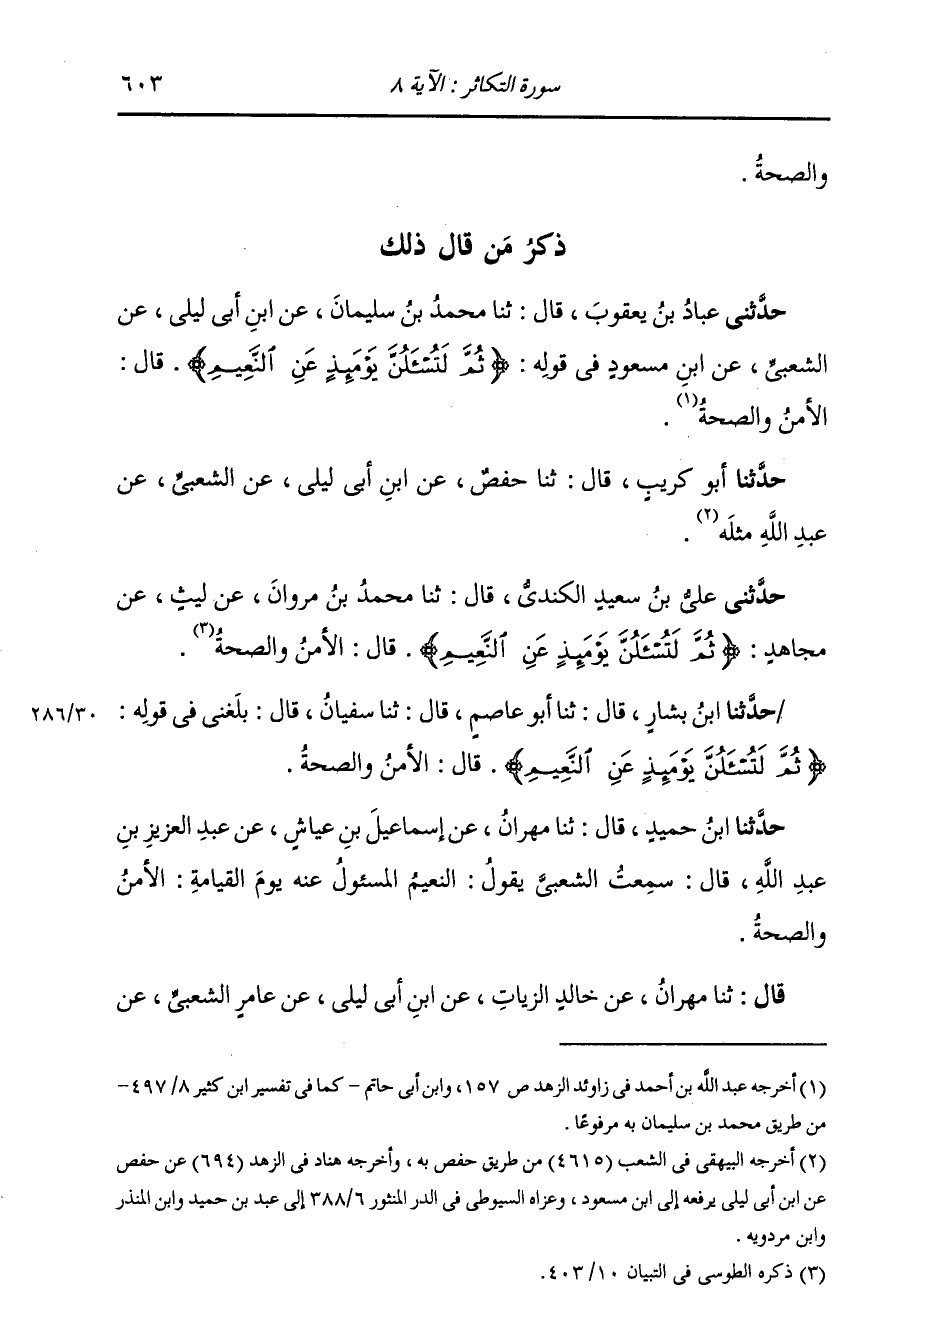 سورة التكاثر : الآية ٨
٦٠٣
والصحةُ .
ذكرُ مَن قال ذلك
حدَّثنى عبادُ بنُ يعقوبَ ، قال : ثنا محمدُ بنُ سليمانَ ، عن ابنِ أبى ليلى ، عن
الشعبىِّ ، عن ابنِ مسعودٍ فى قولِه : ﴿ ثُمَّ لَتُسْـَٔلُنَّ يَوْمَىِٕذٍ عَنِ ٱلنَّعِيمِ ﴾ . قال :
الأمنُ والصحةُ(١) .
حدَّثنا أبو كريبٍ ، قال : ثنا حفصٌ ، عن ابنِ أبى ليلى ، عن الشعبىِّ ، عن
عبدِ اللَّهِ مثلَه(٢) .
حدَّثنى علىُّ بنُ سعيدٍ الكندىُّ ، قال : ثنا محمدُ بنُ مروانَ ، عن ليثٍ ، عن
مجاهدٍ : ﴿ ثُمَّ لَتُسْـَٔلُنَّ يَوْمَىِٕذٍ عَنِ ٱلنَّعِيمِ ﴾ . قال : الأمنُ والصحةُ(٣) .
/حدَّثنا ابنُ بشارٍ ، قال : ثنا أبو عاصمٍ ، قال : ثنا سفيانُ ، قال : بلَغنى فى قولِه :
٢٨٦/٣٠
﴿ ثُمَّ لَتُسْـَٔلُنَّ يَوْمَىِٕذٍ عَنِ ٱلنَّعِيمِ ﴾ . قال : الأمنُ والصحةُ .
حدَّثنا ابنُ حميدٍ ، قال : ثنا مهرانُ ، عن إسماعيلَ بنِ عياشٍ ، عن عبدِ العزيزِ بنِ
عبدِ اللَّهِ ، قال : سمِعتُ الشعبىَّ يقولُ : النعيمُ المسئولُ عنه يومَ القيامةِ : الأمنُ
والصحةُ .
قال : ثنا مهرانُ ، عن خالدٍ الزياتِ ، عن ابنِ أبى ليلى ، عن عامرٍ الشعبىِّ ، عن
(١) أخرجه عبد اللَّه بن أحمد فى زوائد الزهد ص ١٥٧، وابن أبى حاتم – كما فى تفسير ابن كثير ٨/ ٤٩٧ –
من طريق محمد بن سليمان به مرفوعًا .
(٢) أخرجه البيهقى فى الشعب (٤٦١٥) من طريق حفص به ، وأخرجه هناد فى الزهد (٦٩٤) عن حفص
عن ابن أبى ليلى يرفعه إلى ابن مسعود ، وعزاه السيوطى فى الدر المنثور ٣٨٨/٦ إلى عبد بن حميد وابن المنذر
وابن مردويه .
(٣) ذكره الطوسى فى التبيان ١٠/ ٤٠٣.